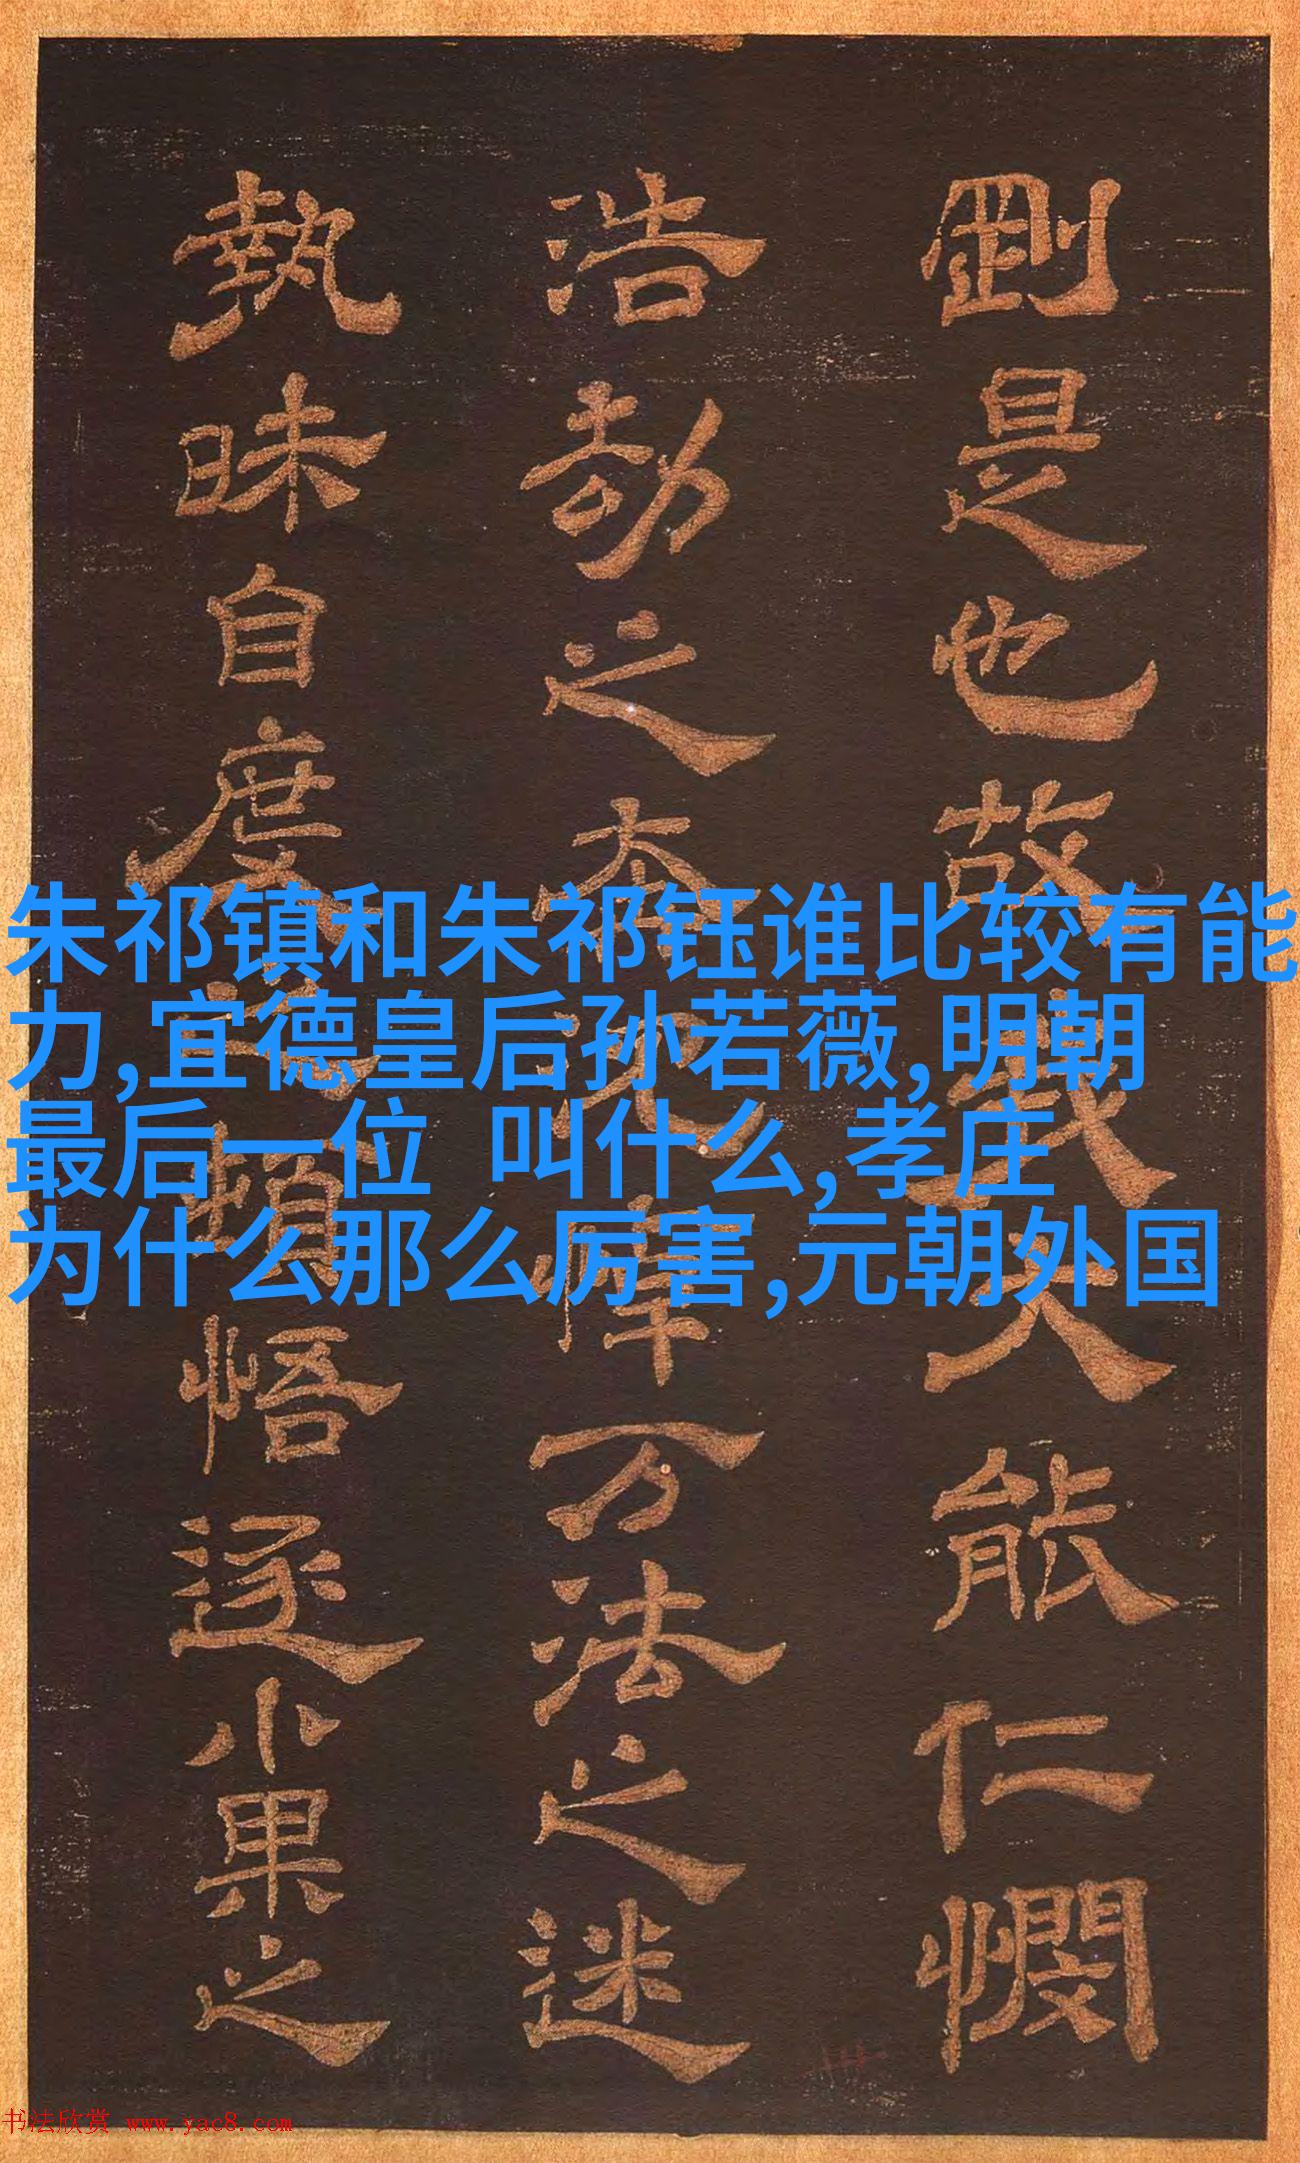 剛是也故我大能仁憫
浩劫之本沉淪萬法之迷
執昧自度
悟逐小果之
朱祁镇和朱祁钰谁比较有能
力,宜德皇后孙若薇,明朝
最后一位 叫什么,孝庄
为什么那么厉害,元朝外国
书法欣赏 www.yac8.com